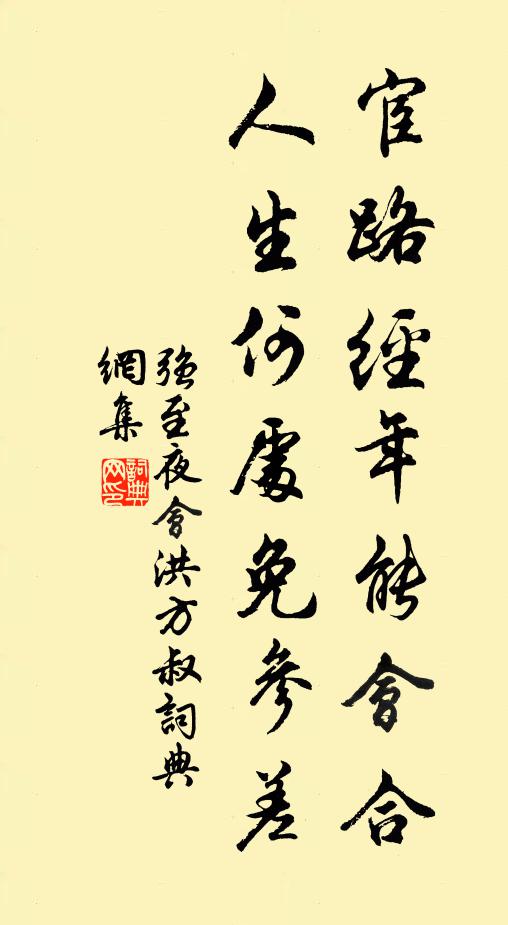 宦路經年能會合
人生何處免參差
强至夜會洪方叔詞典
網集
詞典網印